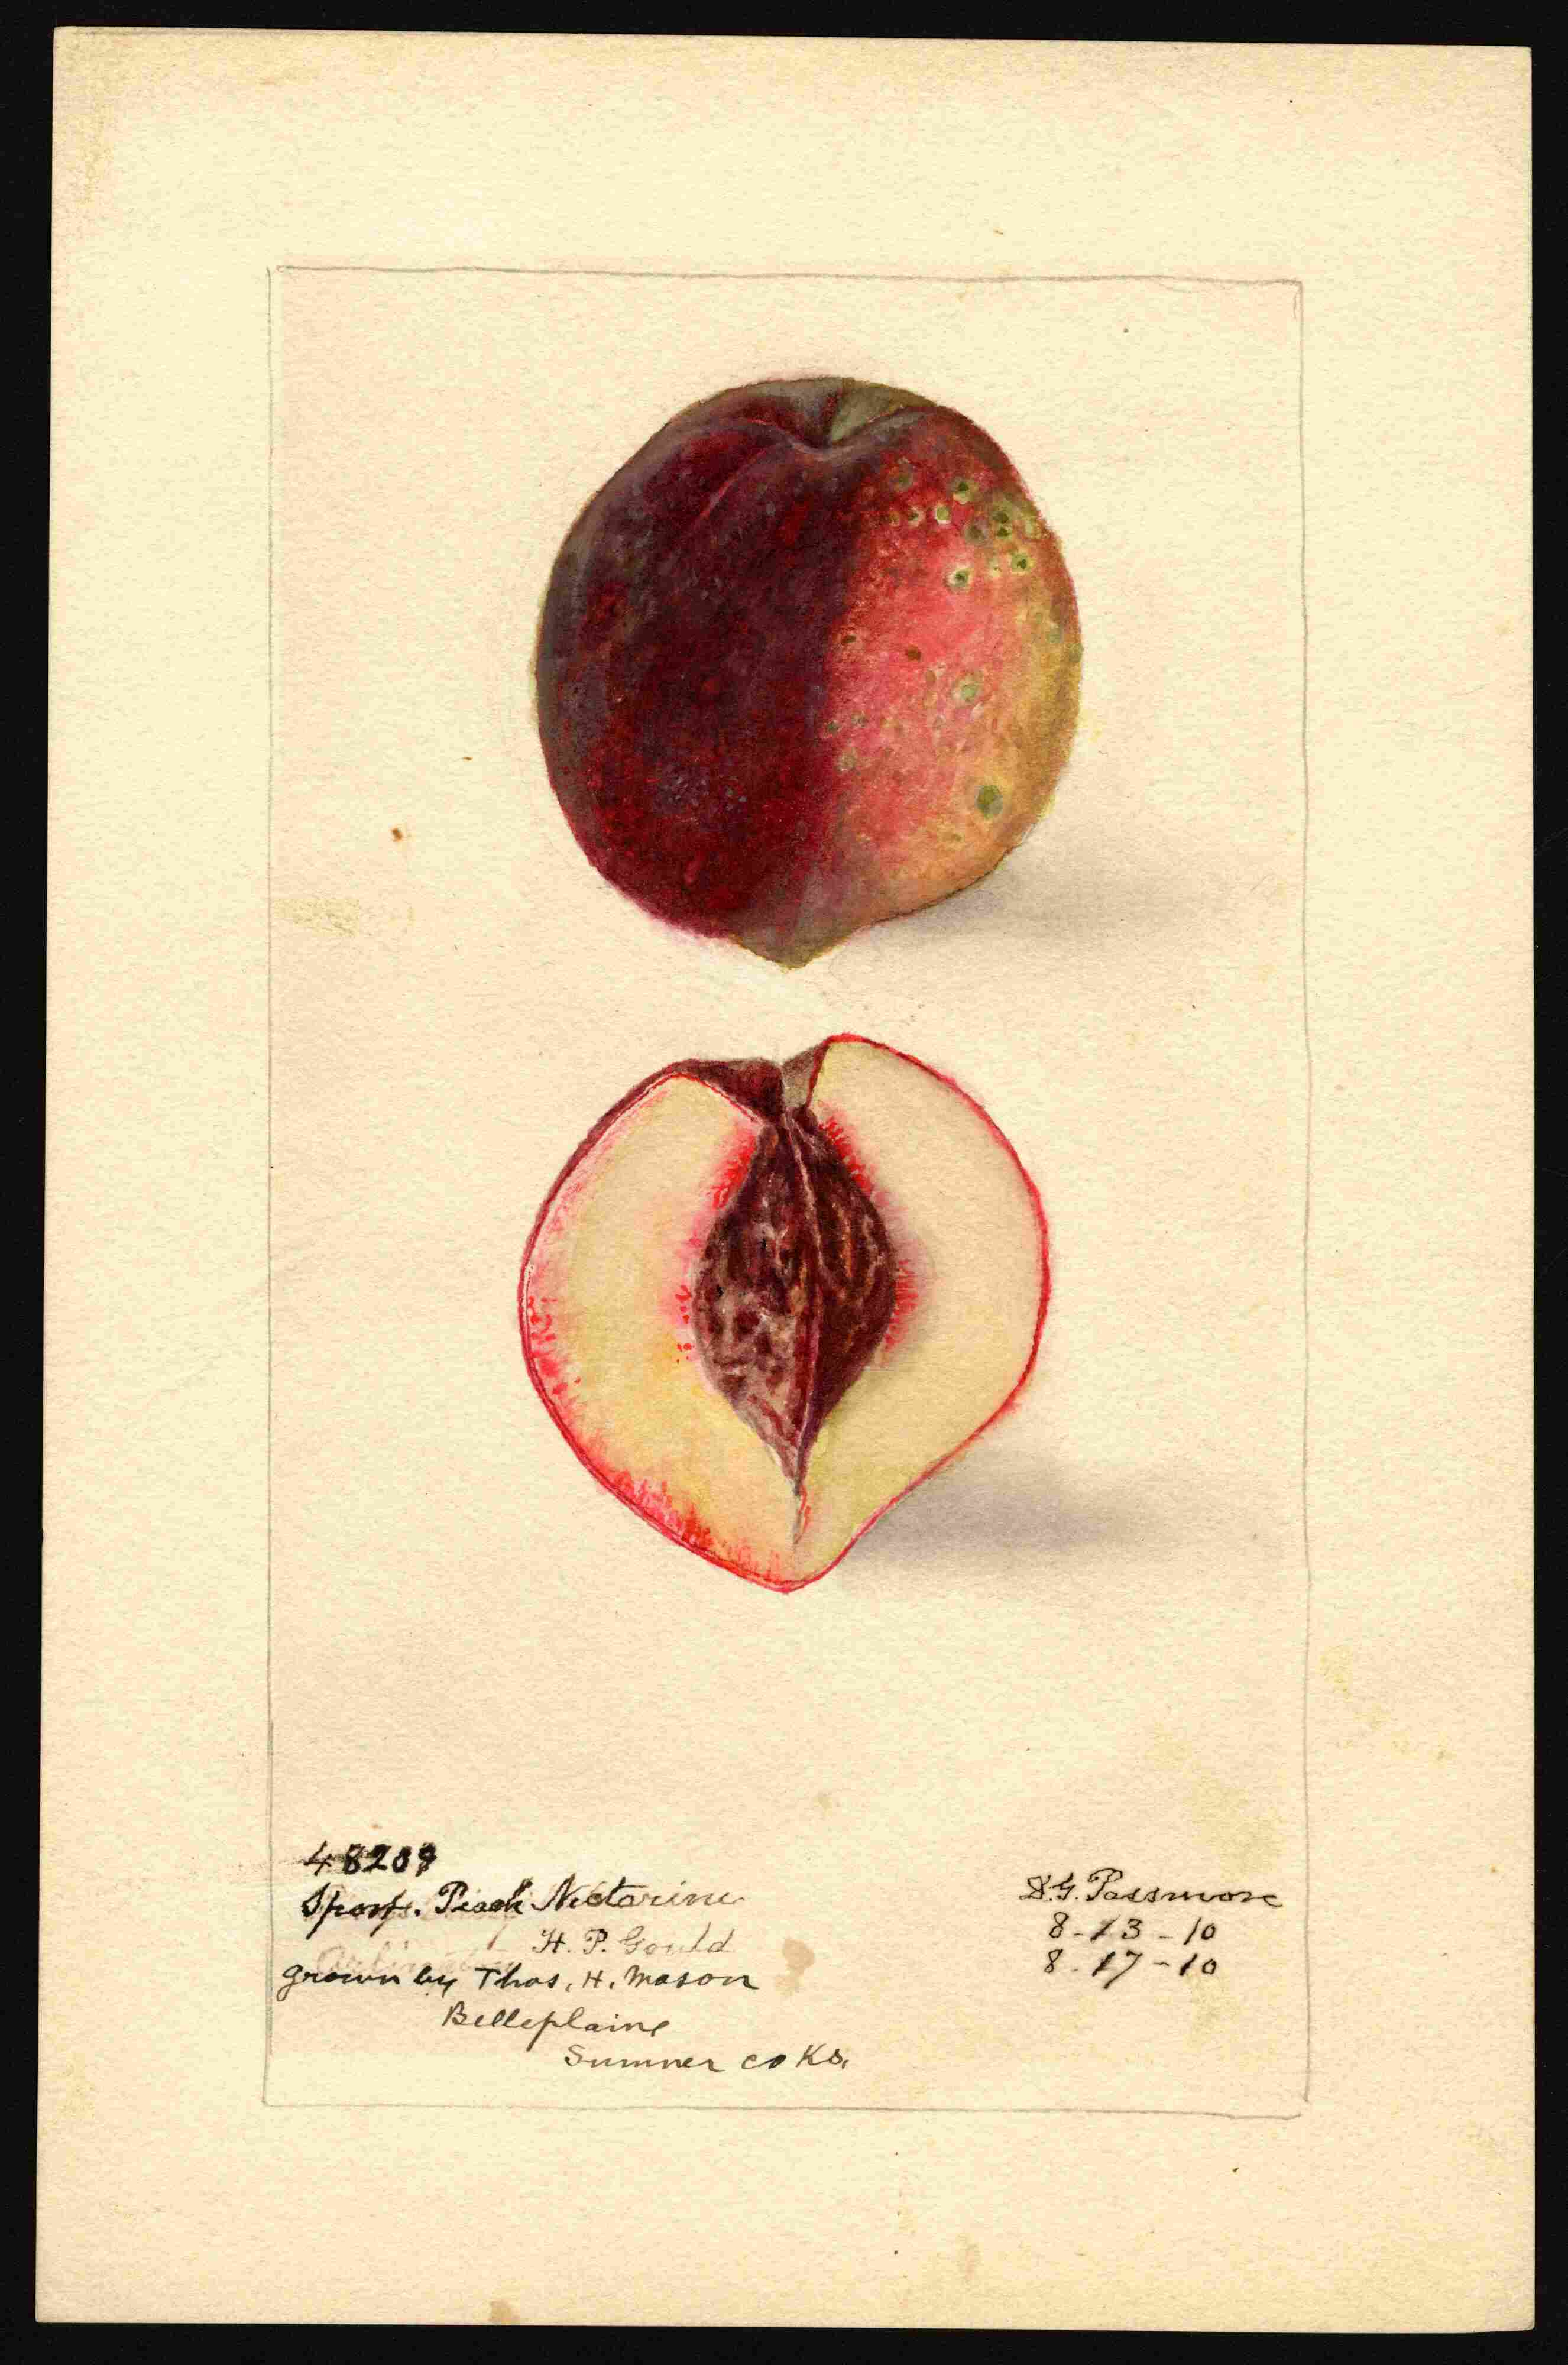 48209
Sport. Peach Nectarine
H. P. Gould
grown by Thos. H. Mason
Belleplaine
Sumner co Ks.
D.G. Passmore
8-13-10
8-17-10